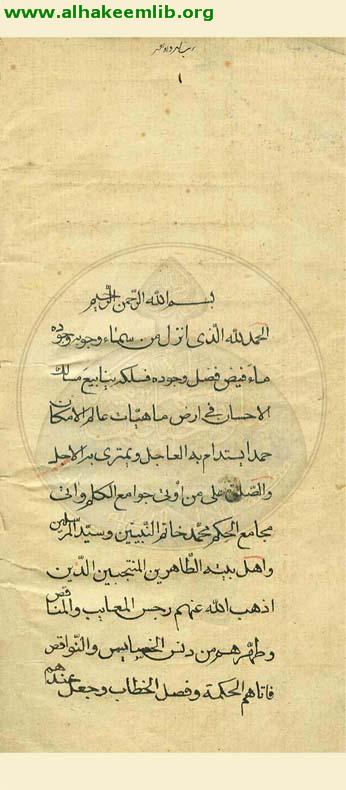 www.alhakeemlib.org
١
بسم الله الرحمن الرحيم
الحمد لله الّذى انزل من سماء وجوب وجوده
ماء فيض فضل وجوده فسلكه ينابيع مسالك
الاحسان فى ارض ماهيّات عالم الامكان
حمدا يستدام به العاجل ويمترى به الآجل
والصّلوة على من اوتى جوامع الكلم واتى
مجامع الحكم محمّد خاتم النّبيّين وسيّد المرسلين
واهل بيته الطّاهرين المنتجبين الّذين
اذهب الله عنهم رجس المعايب والمناقص
وطهّرهم من دنس الخسايس والنّواقص
فاتاهم الحكمة وفصل الخطاب وجعل عندهم